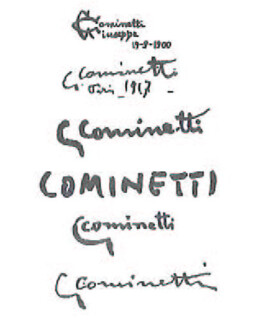 Cominetti
Giuseppe
19-9-1900
G Cominetti
Paris_1917_
G Cominetti
COMINETTI
G Cominetti
G Cominetti